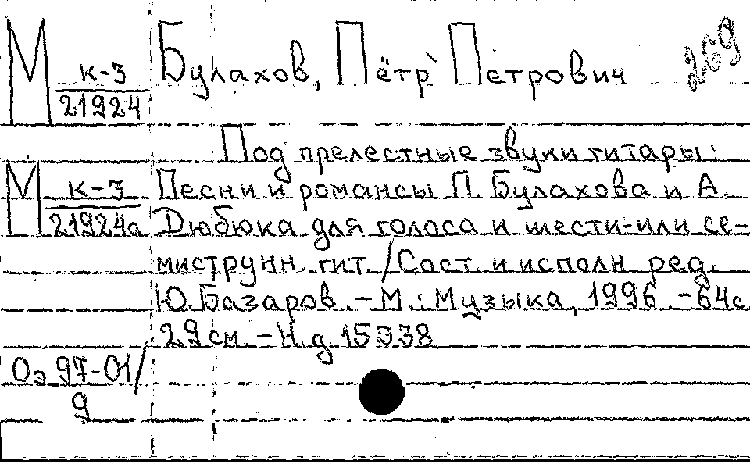 М к-3 Булахов, Пётр Петрович 269
21924
Под прелестные звуки гитары:
М к-3 Песни и романсы П. Булахова и А.
21924а Дюбюка для голоса и шести-или се-
миструнн. гит. / Сост. и исполн. ред.
Ю. Базаров. - М.: Музыка, 1996. - 64с.
29см. - Н.д. 15338
Оэ 97-01/
9